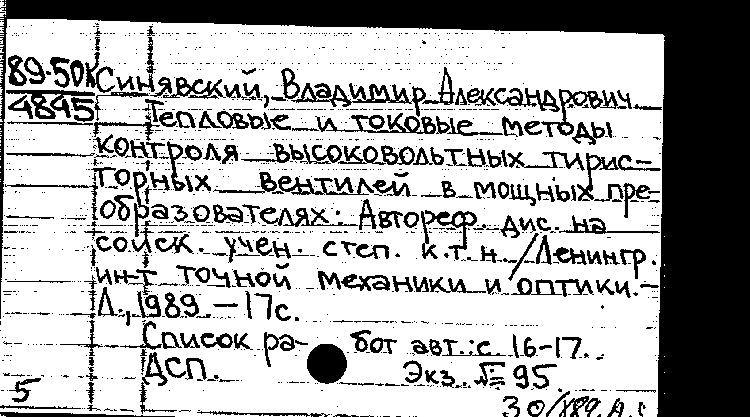 89-50К Синявский, Владимир Александрович
4845 Тепловые и токовые методы
контроля высоковольтных тирис-
торных вентилей в мощных пре-
образователях: Автореф. дис. на
соиск. учен. степ. к.т.н. /Ленингр.
ин-т точной механики и оптики.-
Л., 1989.-17с.
Список работ авт.: с. 16-17.
ДСП. Экз. № 95
5